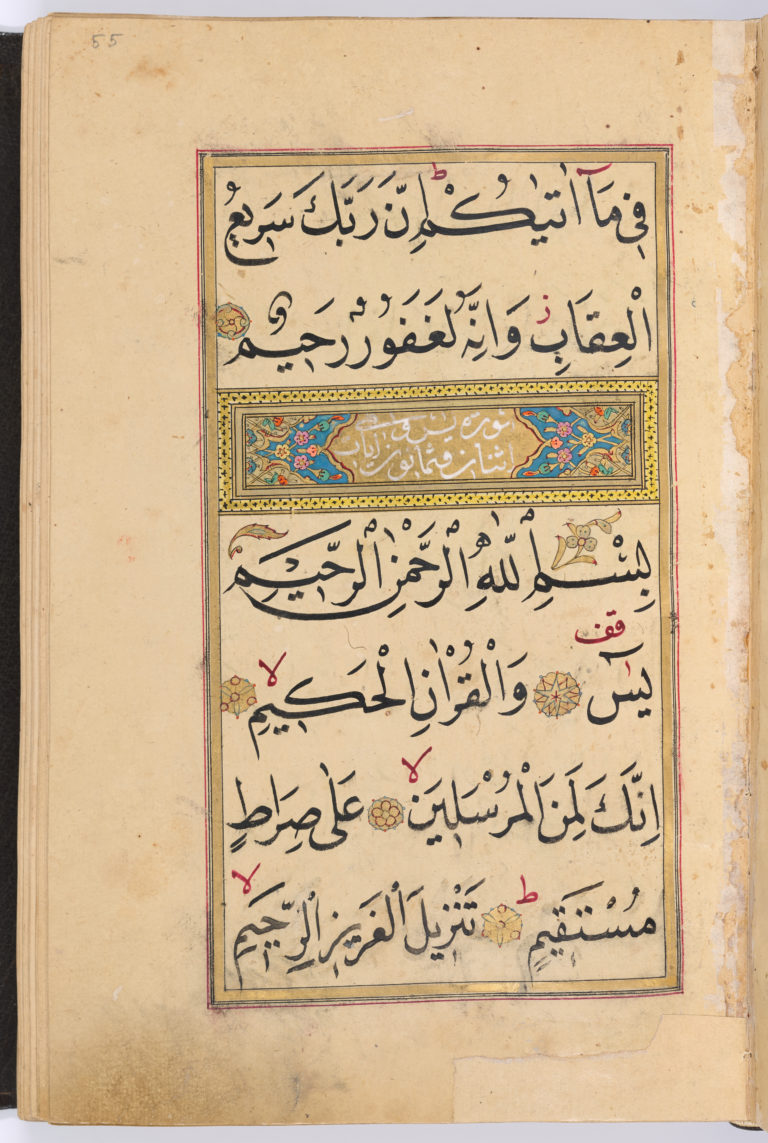 55
فِى مَآ اٰتٰيكُمْ ط اِنَّ رَبَّكَ سَرِيعُ
الْعِقَابِ ز وَاِنَّهُ لَغَفُورٌ رَحِيمٌ
سورة يس وهى
اثنان وثمانون اية
بِسْمِ اللّٰهِ الرَّحْمٰنِ الرَّحِيمِ
قف
يٰسٓ وَالْقُرْاٰنِ الْحَكِيمِ لا
اِنَّكَ لَمِنَ الْمُرْسَلِينَ لا عَلٰى صِرَاطٍ
مُسْتَقِيمٍ ط تَنْزِيلَ الْعَزِيزِ الرَّحِيمِ لا